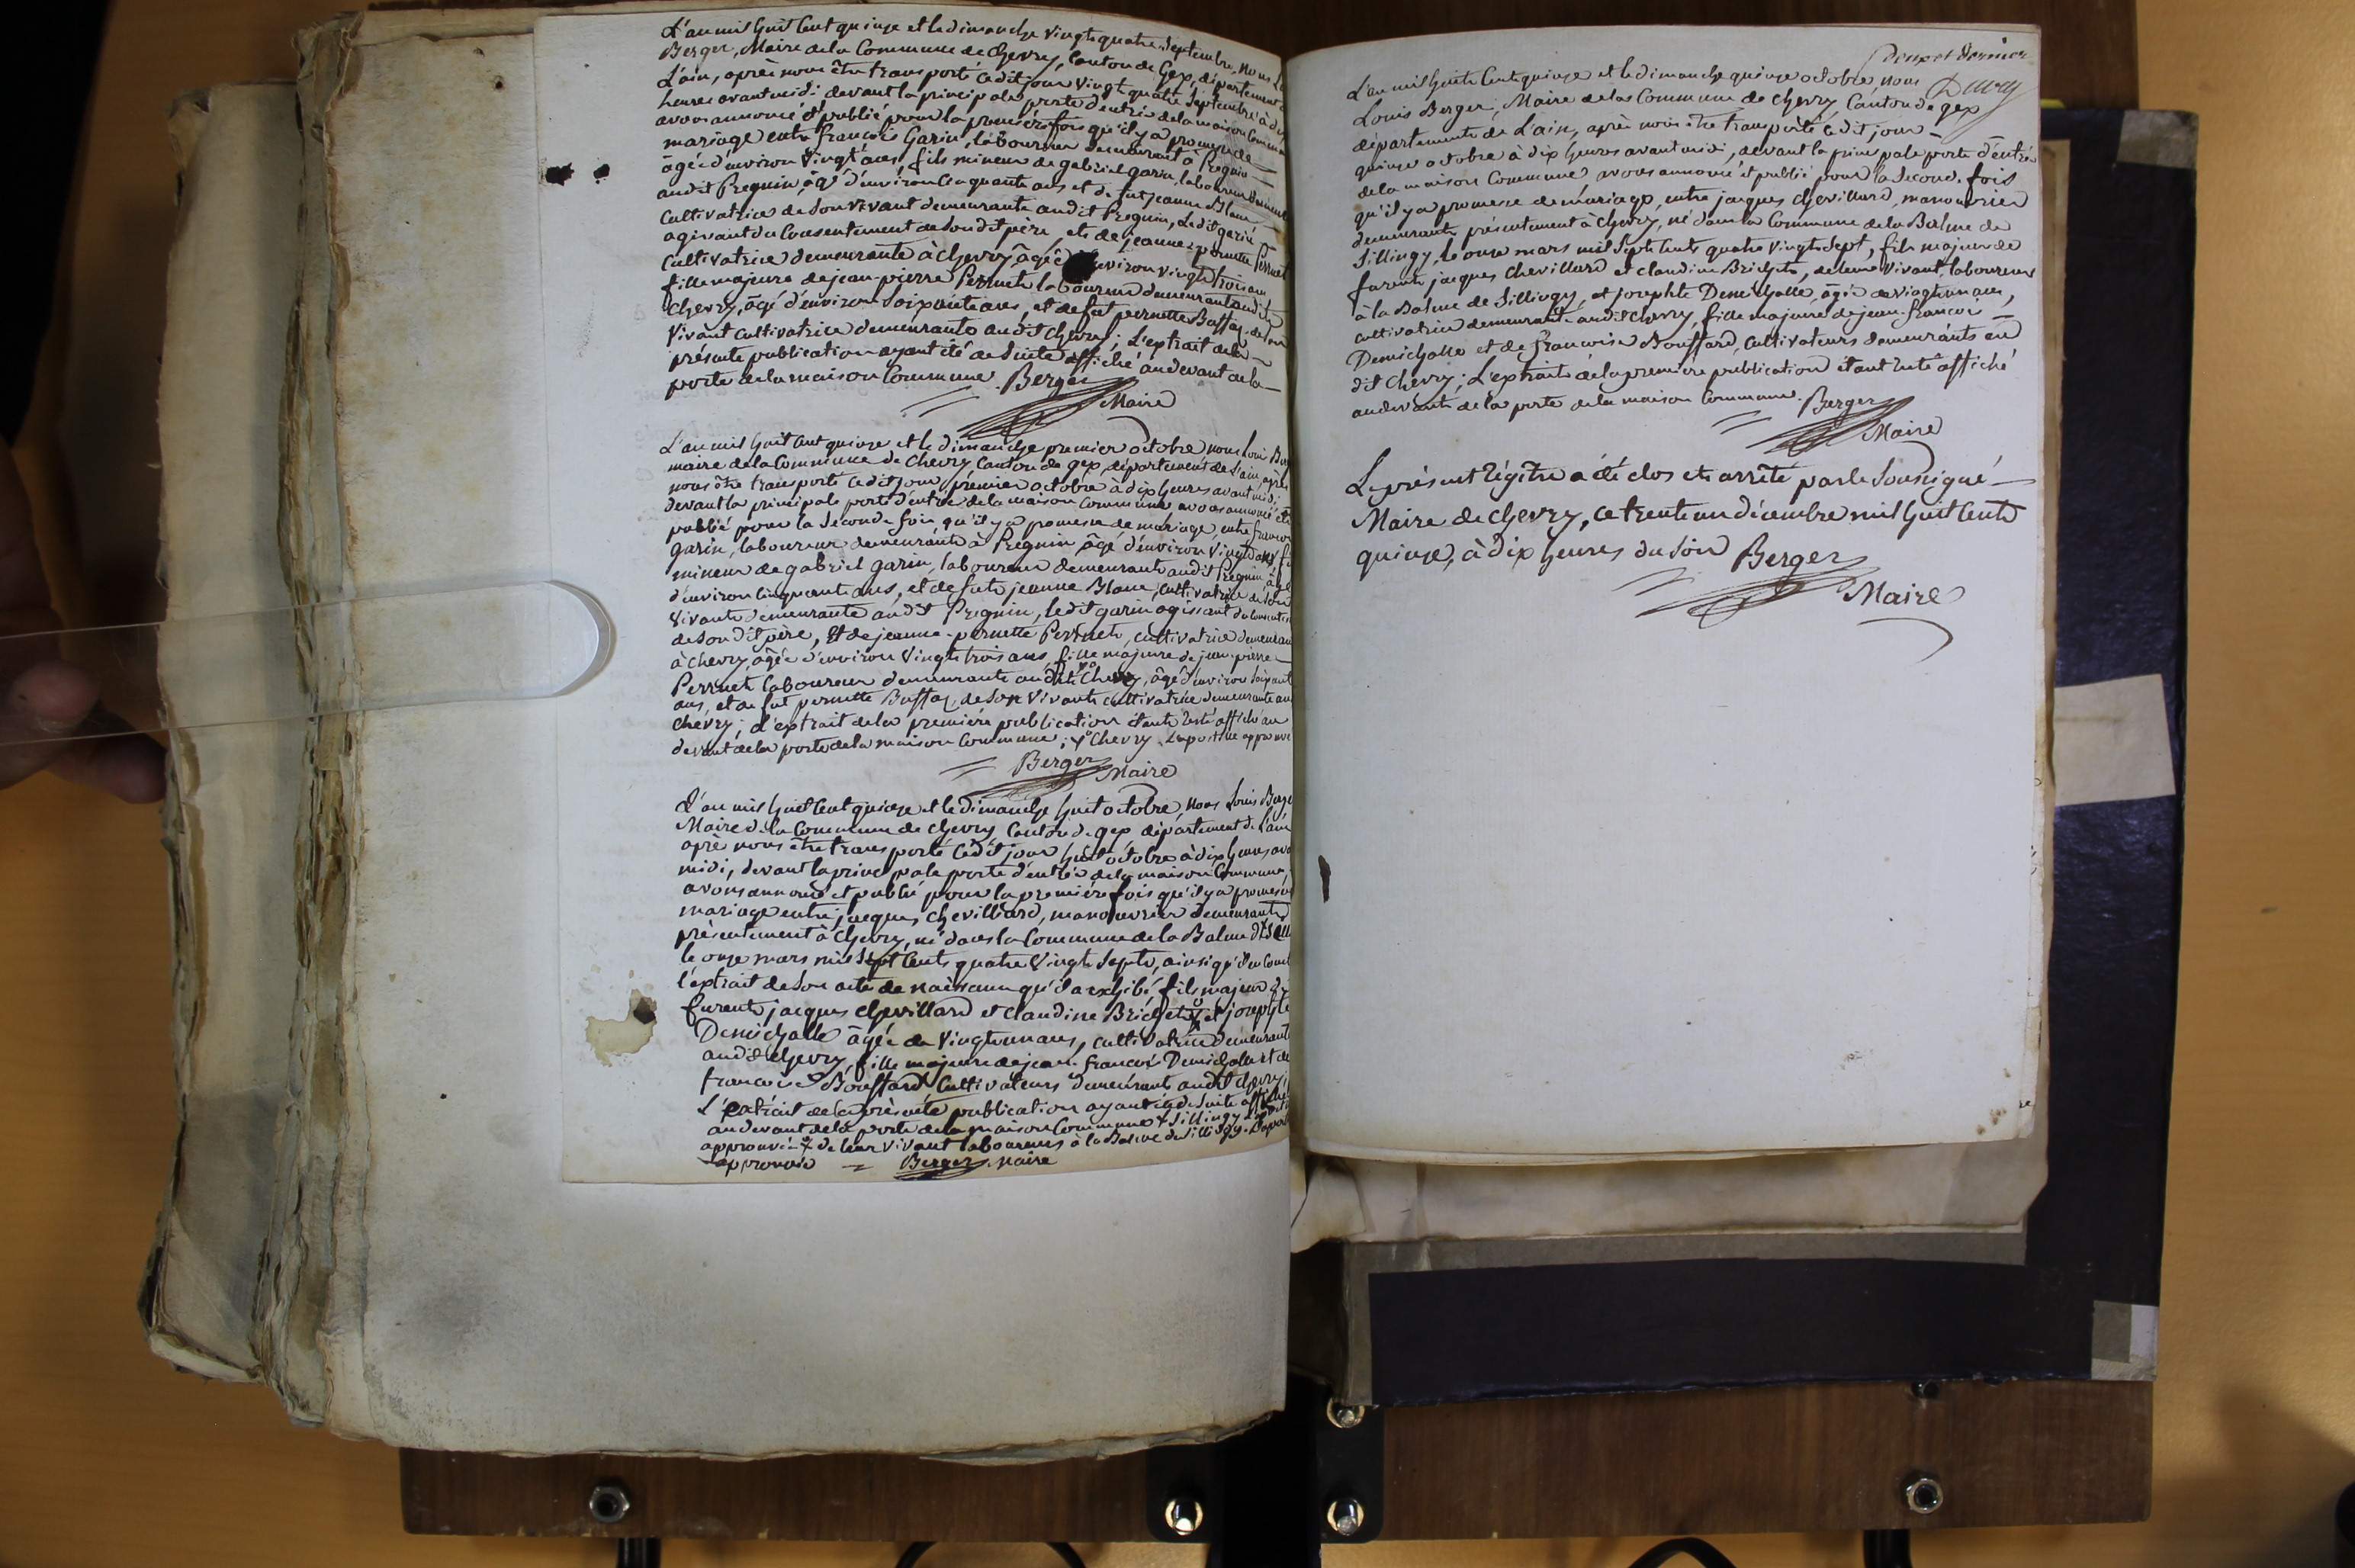 L'an mil huit cent quinze et le dimanche vingt quatre septembre, nous
Berger, Maire de la Commune de chevry, Canton de Gex, département
L'ain, après nous être transporté cedit jour vingt quatre septembre à
heures avant midi devant la principale porte d'entrée de la maison
avons annoncé et publié pour la première fois qu'il y a promesse de
mariage entre francois Garin, laboureur demeurant à Pregnin
âgé d'environ vingt ans, fils mineur de gabriel garin, laboureur
audit Pregnin, âgé d'environ cinquante ans et de fut jeanne Blanc
Cultivatrice de son vivant demeurante audit Pregnin, Ledit garin
agissant du Consentement de son dit père, et de jeanne-pernette Perruet
Cultivatrice demeurante à Chevry, âgée d'environ vingt trois ans
fille majeure de jean-pierre Perruet laboureur demeurant audit
Chevry, âgé d'environ soixante ans, et de fut pernette Buffaz de son
vivant cultivatrice demeurante audit chevry; L'extrait de la
présente publication ayant été de suite affiché au devant de la
porte de la maison Commune. Berger
Maire
L'an mil huit cent quinze et le dimanche premier octobre nous Loui
maire de la Commune de Chevry Canton de gex, département de L'ain, après
nous être transporté cedit jour premier octobre à dix heures avant midi
devant la principale porte d'entrée de la maison Commune avons annoncé et
publié pour la seconde fois, qu'il y a promesse de mariage, entre francois
garin, laboureur demeurante à Pregnin âgé d'environ vingt ans, fi
mineur de gabriel garin, laboureur demeurante audit Pregnin âgé
d'environ cinquante ans, et de fute jeanne Blanc, cultivatrice de son
vivante demeurante audit Pregnin, ledit garin agissant du
de son dit père, Et de jeanne-pernette Perruet, cultivatrice
à chevry, âgée d'environ vingt trois ans, fille majeure de jean-pierre
Perruet laboureur demeurante audit Chevry, âgé d'environ
ans, et de fut pernette Buffaz, de son vivante cultivatrice demeurante au
chevry; L'extrait de la première publication étant resté affiché au
devant de la porte de la maison Commune; Chevry
Berger Maire
L'an mil huit cent quinze et le dimanche huit octobre, nous Louis
Maire de la Commune de chevry Canton de gex département de L'ain
après nous être transporté cedit jour huit octobre à dix heures
midi, devant la principale porte d'entrée de la maison Commune,
avons annoncé et publié pour la première fois qu'il y a promesse
mariage entre jacques chevilliard, manouvrier demeurante
présentement à Chevry, né dans la Commune de la Balme de
le onze mars mil sept cents quatre vingt sept, ainsi qu'il en
l'extrait de son acte de naissance qu'il a exhibé, fils majeur de
furent jacques chevillard et claudine Brichet et josephte
Demichalle âgée de vingt un ans, cultivatrice demeurante
audit chevry, fille majeure de jean francois Demichalle et de
francoise Bouffard Cultivateurs demeurants audit chevry;
L'extrait de la présente publication ayant été de suite affiché
au devant de la porte de la maison Commune Sillingy
approuvée de leur vivant laboureurs à la Balme de Sillingy.
approuvée Berger maire
Deux et dernier
L'an mil huit Cent quinze et le dimanche quinze octobre nous
Louis Berger, Maire de la Commune de Chevry Canton de gex
département de L'ain, après nous être transporté ledit jour
quinze octobre à dix heures avant midi, devant la principale porte d'entrée
de la maison Commune avons annoncé et publié pour la seconde fois
qu'il y a promesse de mariage, entre jacques Chevillard, manouvrier
demeurante présentement à chevry, né dans la Commune de la Balme de
Sillingy, le onze mars mil sept cents quatre vingt sept, fils majeur de
furent jacques Chevillard et claudine Brichet, de leur vivant, laboureurs
à la Balme de Sillingy, et josephte Demichalle, âgée de vingt un ans,
cultivatrice demeurante audit chevry, fille majeure de jean-francois
Demichalle et de francoise Bouffard, cultivateurs demeurants au
dit Chevry; L'extrait de la première publication étant resté affiché
au devante de la porte de la maison Commune. Berger
Maire
Le présent régitre a été clos et arrêté par le soussigné
Maire de chevry, ce trente un décembre mil huit cent
quinze, à dix heures du soir Berger
Maire